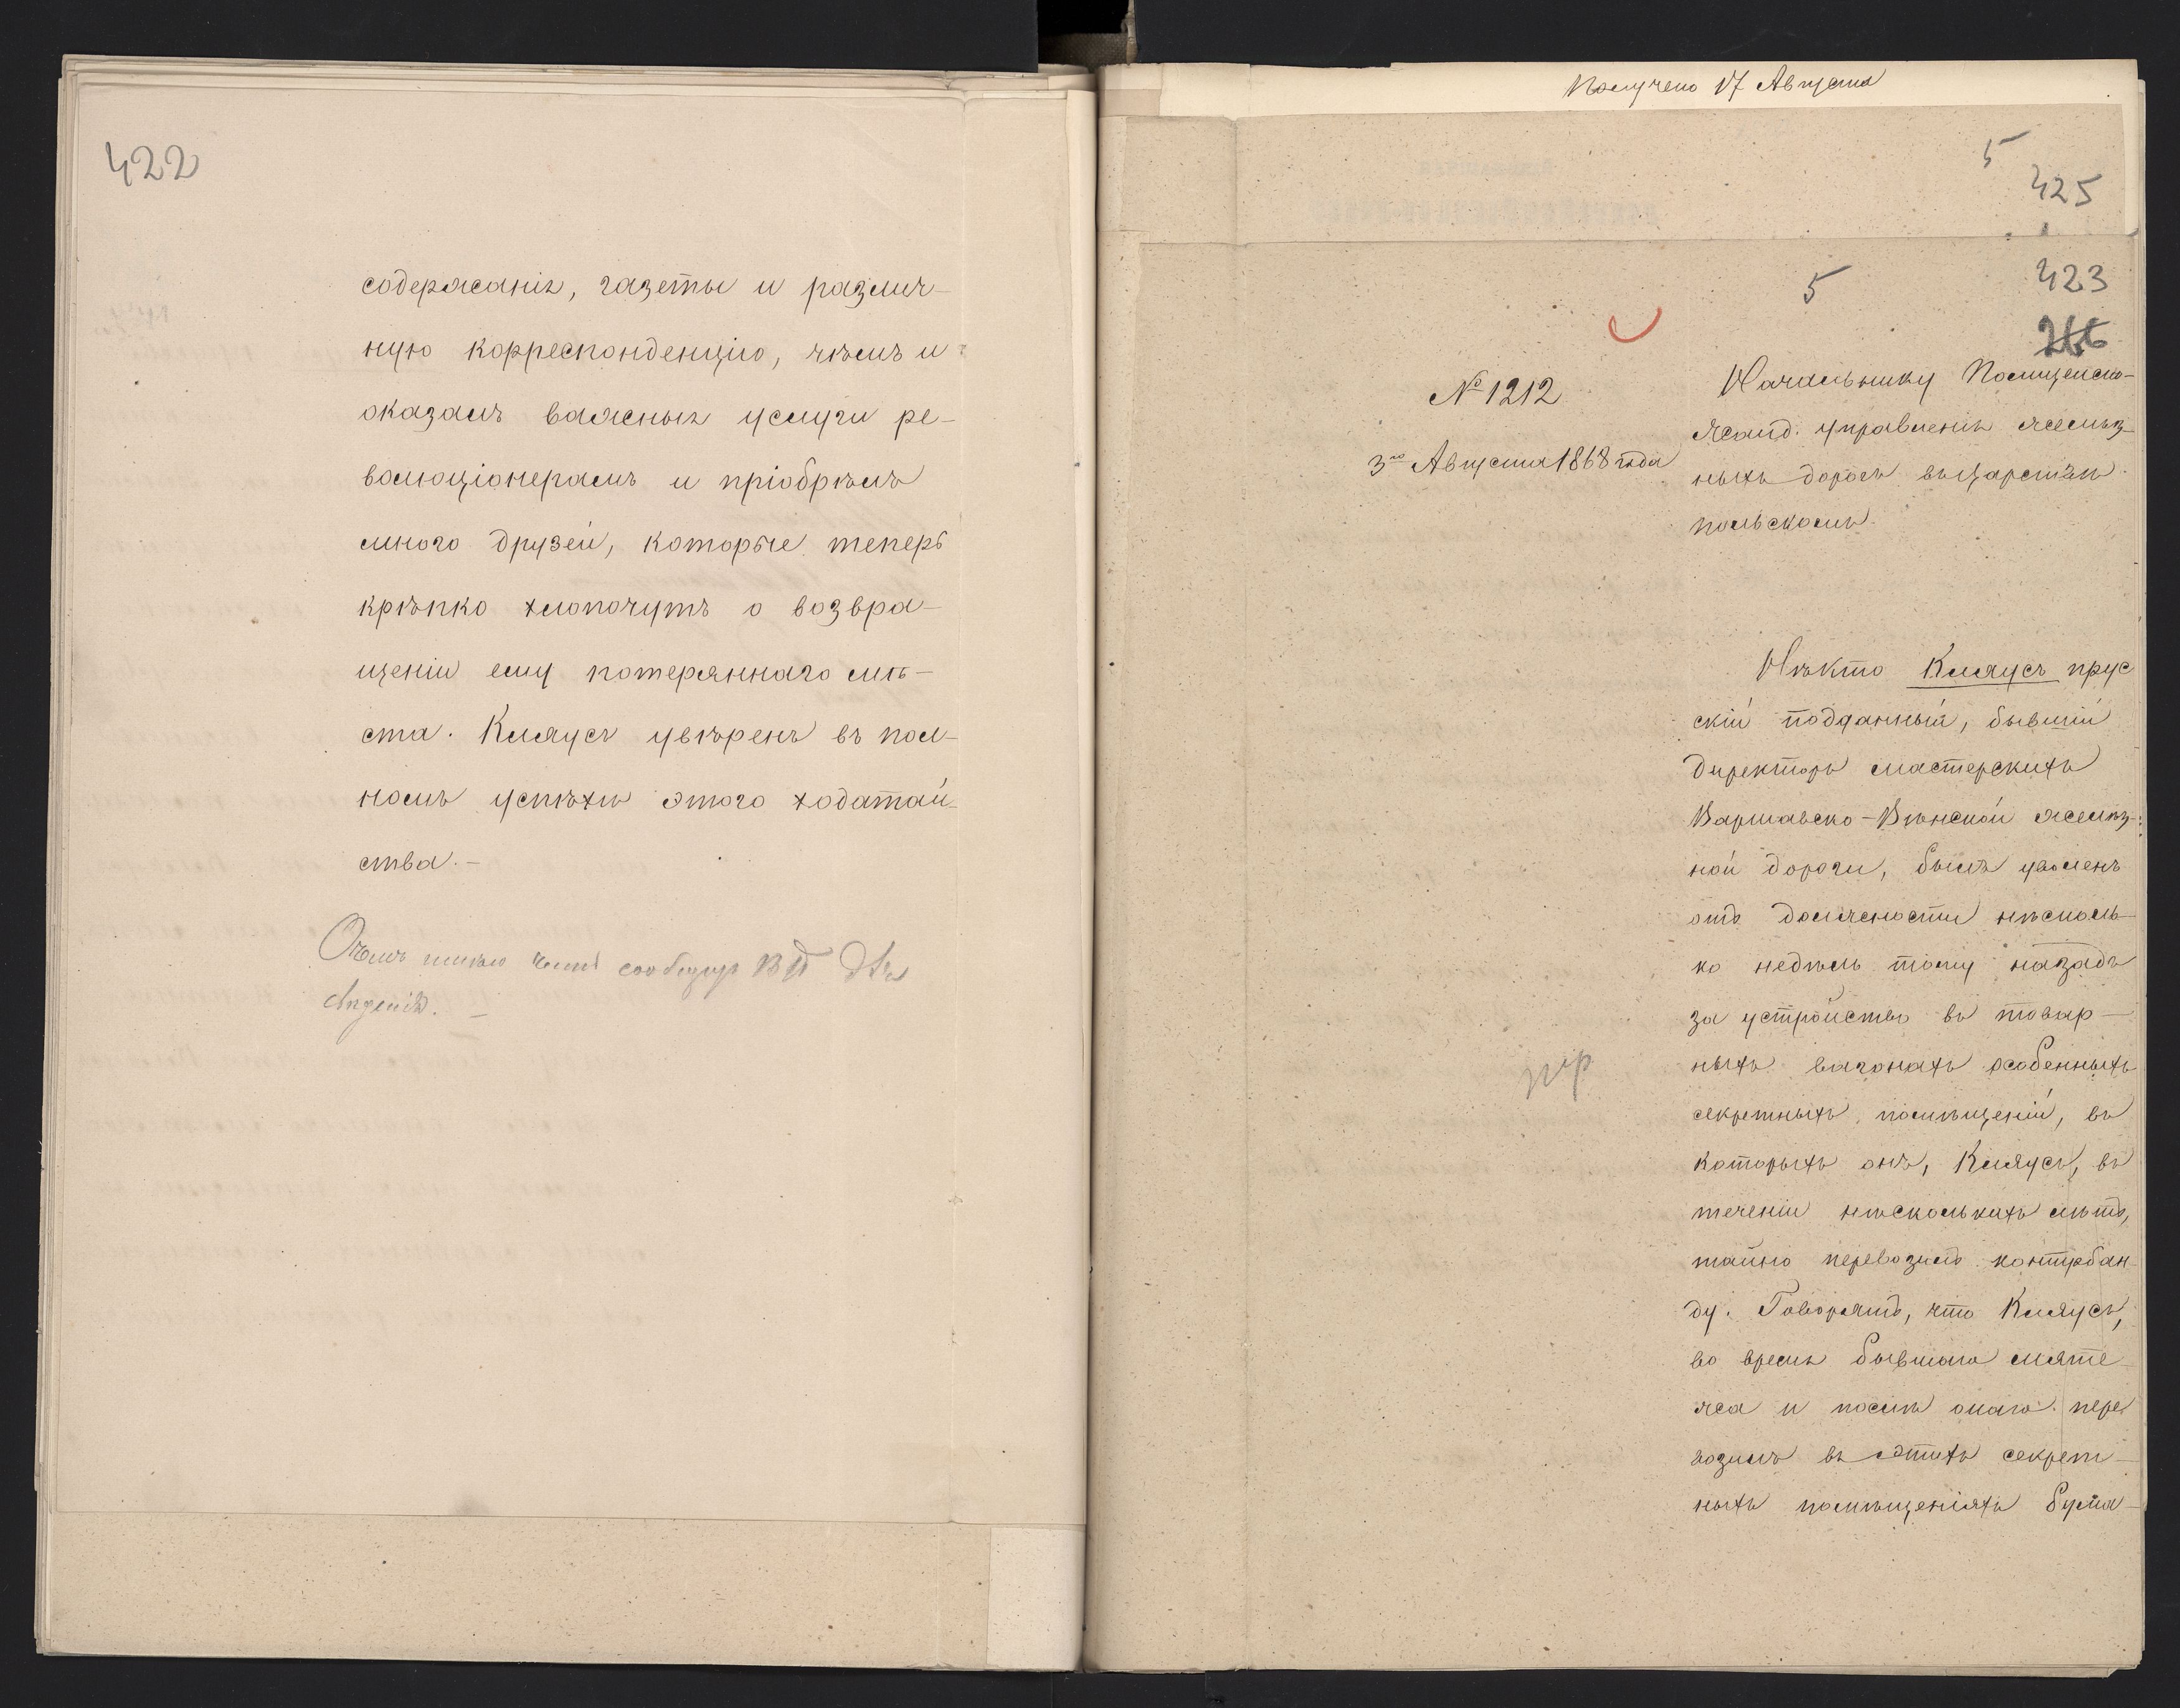 422
содержанія, газеты и различ-
ную корреспонденцію, чѣмъ и
оказалъ важныя услуги ре-
волюціонерамъ и пріобрѣлъ
много друзей, которые теперь
крѣпко хлопочутъ о возвра-
щеніи ему потеряннаго мѣ-
ста. Кляусъ увѣренъ въ пол-
номъ успѣхѣ этого ходатай-
ства.-
Получено 17 Августа
5
425
5
423
№ 1212
3го Августа 1868 года
Начальнику Полицейско-
Жанд. управленія желѣз-
ныхъ дорогъ въ Царствѣ
польскомъ.
Нѣкто Кляусъ прус
скій подданный, бывшій
Директоръ мастерскихъ
Варшавско-Вѣнской желѣз-
ной дороги, былъ уволенъ
отъ должности нѣсколь-
ко недѣль тому назадъ
за устройство въ товар-
ныхъ вагонахъ особенныхъ
секретныхъ помѣщеній, въ
которыхъ онъ, Кляусъ, въ
теченіи нѣсколькихъ лѣтъ,
тайно перевозилъ контрбан-
ду. Говорятъ, что Кляусъ,
во время бывшаго мяте-
жа и послѣ онаго пере
возилъ въ этихъ секрет-
ныхъ помѣщеніяхъ бума-